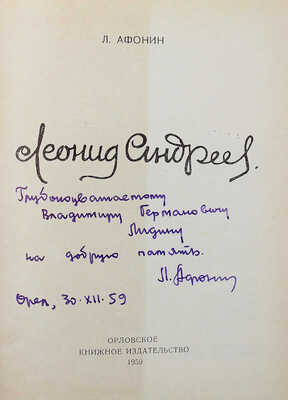 Л. АФОНИН
Леонид Андреев.
Глубокоуважаемому
Владимиру Германовичу
Лидину
на добрую память.
Л. Афонин
Орел, 30·XII·59
ОРЛОВСКОЕ
КНИЖНОЕ ИЗДАТЕЛЬСТВО
1959